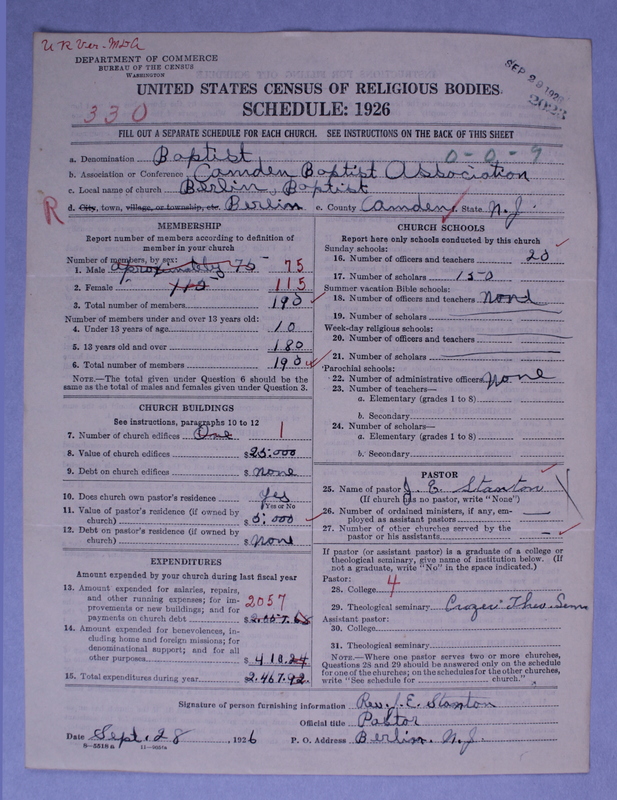 U R Ver- MDA
DEPARTMENT OF COMMERCE
BUREAU OF THE CENSUS
WASHINGTON
SEP 29 1926
2023
UNITED STATES CENSUS OF RELIGIOUS BODIES
330
SCHEDULE: 1926
FILL OUT A SEPARATE SCHEDULE FOR EACH CHURCH. SEE INSTRUCTIONS ON THE BACK OF THIS SHEET
a. Denomination Baptist 0-0-9
b. Association or Conference Camden Baptist Association
c. Local name of church Berlin, Baptist
R d. City, town, village, or township, etc. Berlin e. County Camden f. State N.J.
MEMBERSHIP
Report number of members according to definition of
member in your church
Number of members, by sex:
1. Male aproximably 75 75
2. Female 115
3. Total number of members 190
Number of members under and over 13 years old:
4. Under 13 years of age 10
5. 13 years old and over 180
6. Total number of members 190
NOTE.—The total given under Question 6 should be the
same as the total of males and females given under Question 3.
CHURCH BUILDINGS
See instructions, paragraphs 10 to 12
7. Number of church edifices One 1
8. Value of church edifices $25:000
9. Debt on church edifices $ none
10. Does church own pastor's residence yes
Yes or No
11. Value of pastor's residence (if owned by
church) $5:000
12. Debt on pastor's residence (if owned by
church) $ none
EXPENDITURES
Amount expended by your church during last fiscal year
13. Amount expended for salaries, repairs,
and other running expenses; for im-
provements or new buildings; and for
payments on church debt 2057 $2.057.68
14. Amount expended for benevolences, in-
cluding home and foreign missions; for
denominational support; and for all
other purposes $410.24
15. Total expenditures during year $2.467.92
CHURCH SCHOOLS
Report here only schools conducted by this church
Sunday schools:
16. Number of officers and teachers 20
17. Number of scholars 150
Summer vacation Bible schools:
18. Number of officers and teachers none
19. Number of scholars
Week-day religious schools:
20. Number of officers and teachers
21. Number of scholars
Parochial schools:
22. Number of administrative officers none
23. Number of teachers—
a. Elementary (grades 1 to 8)
b. Secondary
24. Number of scholars—
a. Elementary (grades 1 to 8)
b. Secondary
PASTOR
25. Name of pastor J. E. Stanton
(If church has no pastor, write "None")
26. Number of ordained ministers, if any, em-
ployed as assistant pastors
27. Number of other churches served by the
pastor or his assistants
If pastor (or assistant pastor) is a graduate of a college or
theological seminary, give name of institution below. (If
not a graduate, write "No" in the space indicated.)
Pastor:
28. College 4
29. Theological seminary Crozer Theo. Sem
Assistant pastor:
30. College
31. Theological seminary
NOTE.—Where one pastor serves two or more churches,
Questions 28 and 29 should be answered only on the schedule
for one of the churches; on the schedules for the other churches,
write "See schedule for church."
Signature of person furnishing information Rev. J. E. Stanton
Official title Pastor
Date Sept. 28, 1926 P. O. Address Berlin. N.J.
8-5518a